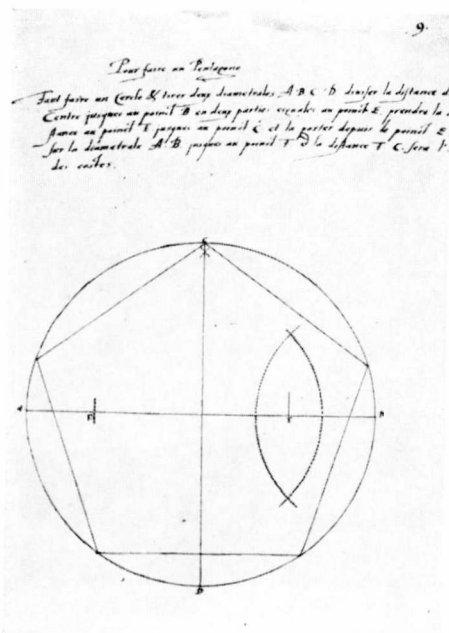 9.
Pour faire un Pentagone
Faut faire un Cercle & tirer deux diametrales A B C D diviser la distance d
Centre jusques au point B en deux parties egualles au point E prendre la
stance au point jusques au point C et la porter depuis le point E
sur la diametrale A B jusques au point & la distance C. sera l
des costes.
C
A
B
D